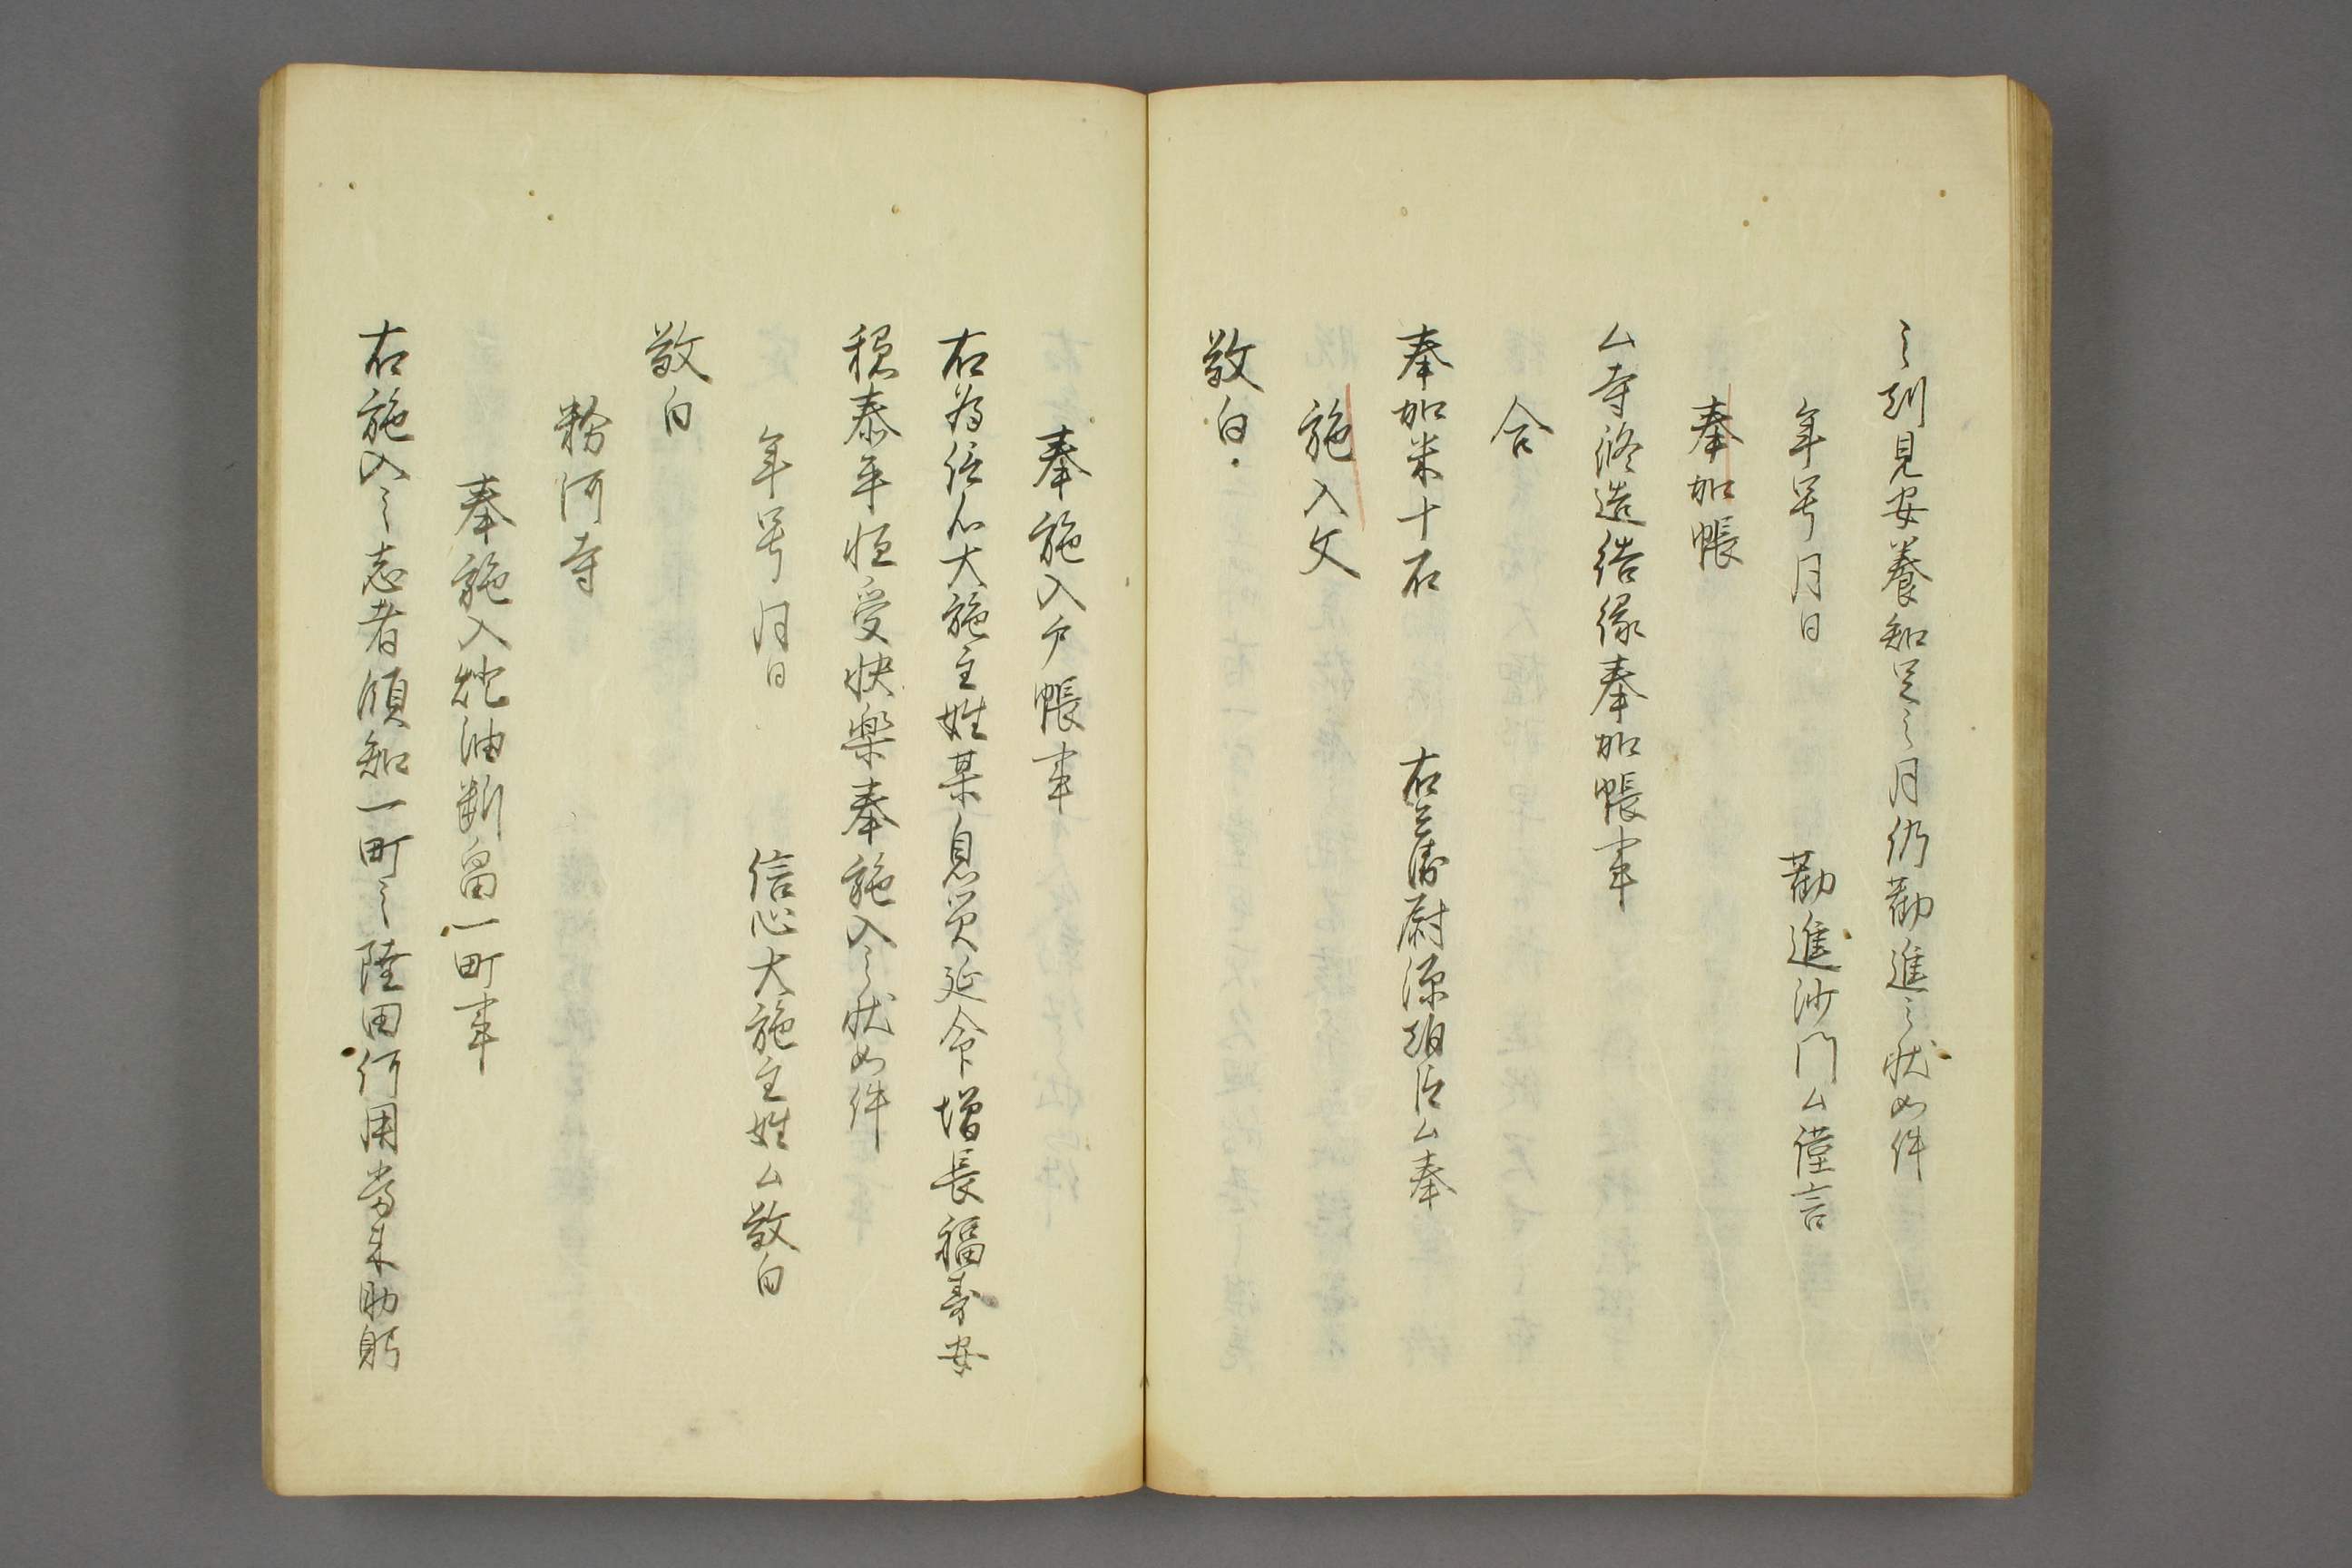 之刻見安養知足之月仍勧進之状如件
年号月日　勧進沙門ム謹言
奉加帳
ム寺修造結縁奉加帳事
合
奉加米十石　右兵衛尉源朝臣ム奉
施入文
敬白
奉施入戸帳事
右為信心大施主姓某息災延命増長福寿安
穏泰平恒受快楽奉施入之状如件
年号月日　信心大施主姓ム敬白
敬白
粉河寺
奉施入灯油断畠一町事
右施入之志者領知一町之陸田何用当来助躬